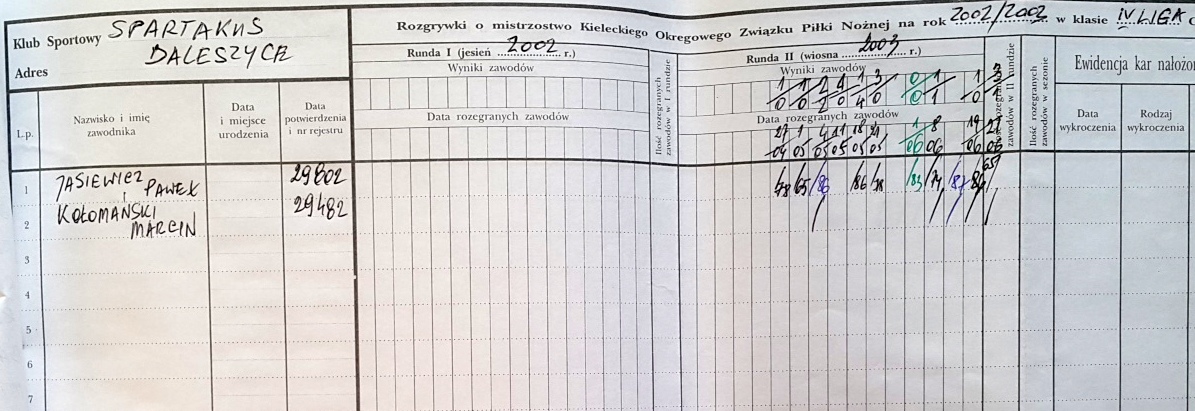 Klub Sportowy SPARTAKUS
DALESZYCE
Adres
Rozgrywki o mistrzostwo Kieleckiego Okregowego Związku Piłki Nożnej na rok 2002/2002 w klasie IV LIGA
Runda I (jesień 2002 r.)
Wyniki zawodów
Data rozegranych zawodów
Ilość rozegranych zawodów w I rundzie
Runda II (wiosna 2003 r.)
Wyniki zawodów
1 1 2 4 1 3 0 1 1 3
0 0 2 0 4 0 0 1 0 1
Data rozegranych zawodów
27 1 4 11 18 21 1 8 19 21
04 05 05 05 05 05 06 06 06 06
rozegranych zawodów w II rundzie
Ilość rozegranych zawodów w sezonie
Ewidencja kar nałożo
L.p.
Nazwisko i imię zawodnika
Data i miejsce urodzenia
Data potwierdzenia i nr rejestru
Data wykroczenia
Rodzaj wykroczenia
1 JASIEWICZ PAWEŁ 29802
i
2 KOŁOMAŃSKI MARCIN 29482
3
4
5
6
7